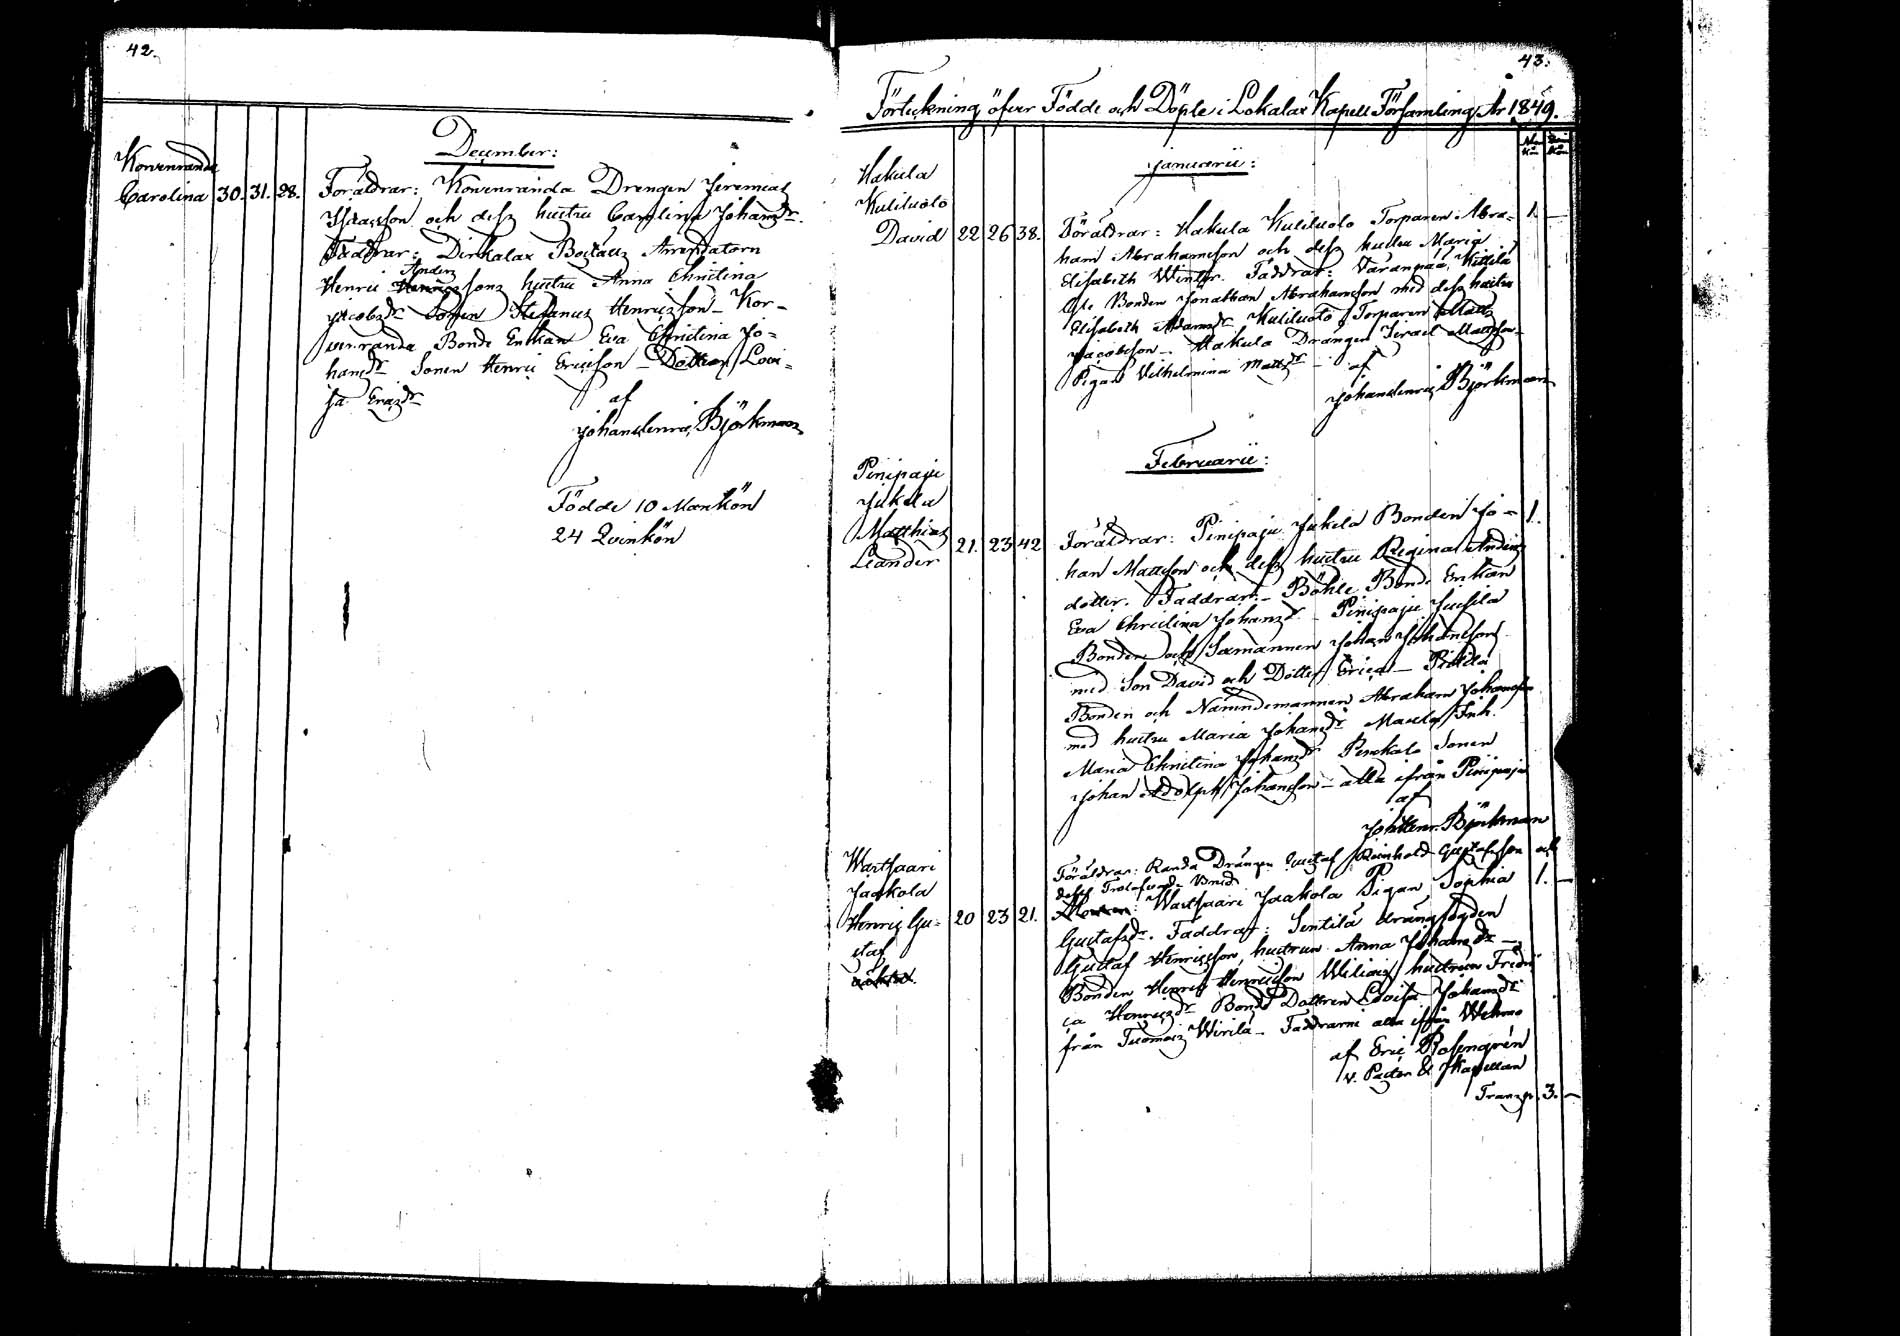 42.
December:
Korvenranda
Carolina 30. 31. 28. Föräldrar: Korvenranda Drengen Jeremias
Isaacsson och dess hustru Carolina Johansdr.
Faddrar: Dirkalax Bostads Arrendatorn
Anders
Henric hustru Anna Christina
Jacobsdr Sonen Stefanus Henricsson - Kor-
venranda Bonde Enkan Eva Christina Jo-
hansdr Sonen Henric Ericsson - Dottren Lovi-
sa Ericsdr
af
Johan Henric Björkman
Födde 10 Mankön
24 Qvinkön
43.
Förteckning öfver Födde och Döpte i Lokalax Kapell Församling År 1849.
Man Kön Qvin Kön
Januarii:
Hakula
Kuliluoto
David 22 26 38. Föräldrar: Hakula Kuliluoto Torparen Abra- 1. —
ham Abrahamsson och dess hustru Maria
Elisabeth Winter. Faddrar: Varanpää Kittilä
Bonden Jonathan Abrahamsson med dess hustru
Elisabeth Adamsdr Kuliluoto Torparen Matts
Jacobsson - Hakula Drängen Israel Mattsson -
Pigan Vilhelmina Mattsdr - af
Johan Henric Björkman
Februarii:
Pinipaju
Jukela
Matthias
Leander 21. 23 42 Föräldrar: Pinipaju Jukela Bonden Jo- 1.
han Mattsson och dess hustru Regina Anders
dotter. Faddrar: - Böhle Bonde Enkan
Eva Christina Johansdr - Pinipaju Jussila
Bonden och Sexmannen Johan Johansson
med Son David och Dotter Erica - Pietilä
Bonden och Nämndemannen Abraham Johansson
med hustru Maria Johansdr Inh.
Maria Christina Johansdr Penkalo Sonen
Johan Adolph Johansson - alla ifrån Pinipaju
af
Joh Henr. Björkman
Föräldrar: Randa Drängen Gustaf Reinhold Gustafsson och
dess Trolofvade
Wartsaari
Jaakola
Henric Gu-
staf 20 23 21. Wartsaari Jaakola Pigan Sophia 1. —
Gustafsdr. Faddrar: Sentilä drängfogden
Gustaf Henricsson, hustrun Anna Johansdr -
Bonden Henric Henricsson hustrun Fredri
ca Henricsdr Bonde Dottren Lovisa Johansdr
från Tuomois Wirilä - Faddrarne alla ifrån Wehmo
af Eric Rosenqvén
v. Pastor & Kapellan
Transp. 3. —